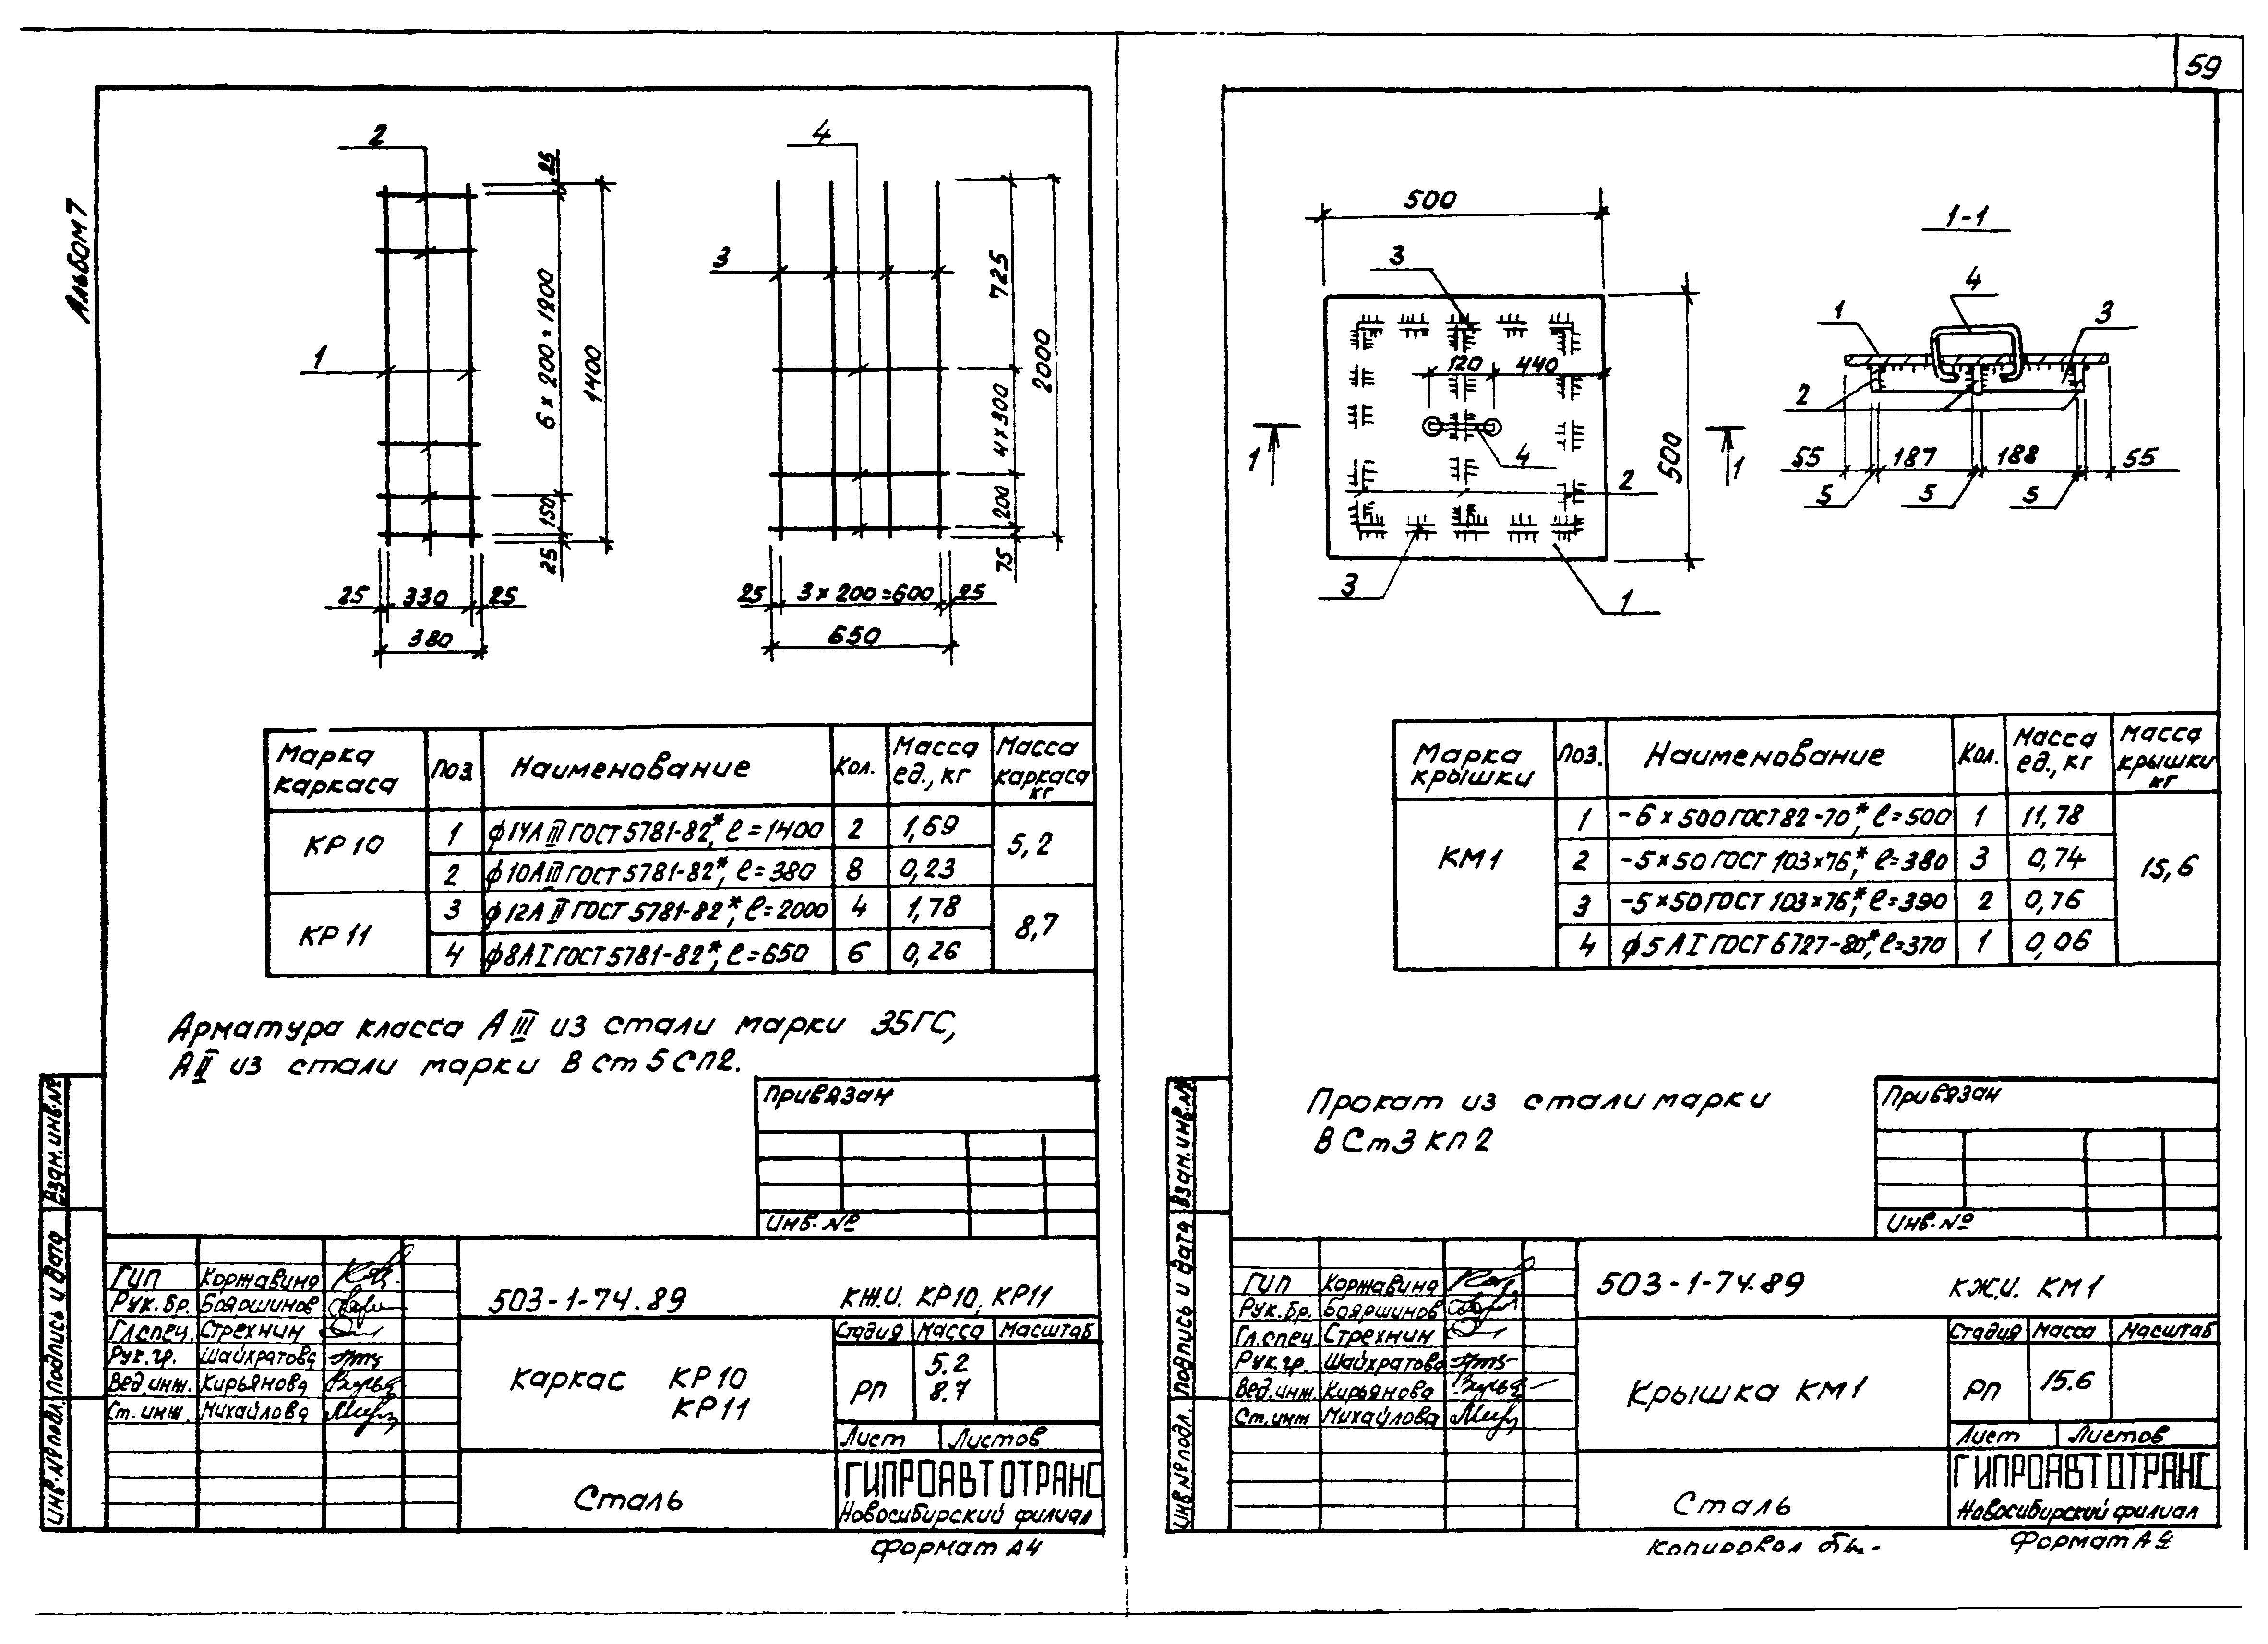 59
Альбом 7
2
1
25
6×200=1200
1400
150
25
25 330 25
380
4
3
725
2000
4×300
200
75
25 3×200=600 25
650
Марка каркаса Поз. Наименование Кол. Масса ед., кг Масса каркаса кг
КР10 1 ϕ14АIII ГОСТ 5781-82*, ℓ=1400 2 1,69 5,2
2 ϕ10АIII ГОСТ 5781-82*, ℓ=380 8 0,23
КР11 3 ϕ12АII ГОСТ 5781-82*, ℓ=2000 4 1,78 8,7
4 ϕ8АI ГОСТ 5781-82*, ℓ=650 6 0,26
Арматура класса АIII из стали марки 35ГС,
АII из стали марки ВСт5СП2.
Привязан
Инв.№
Взам.инв.№
Подпись и дата
Инв.№подл.
ГИП Коржавина
Рук.бр. Бояршинов
Гл.спец. Стрехнин
Рук.гр. Шайхратова
Вед.инж. Кирьянова
Ст.инж. Михайлова
503-1-74.89 КЖ.И. КР10, КР11
Каркас КР10
КР11
Стадия Масса Масштаб
РП 5.2
8.7
Лист Листов
Сталь
ГИПРОАВТОТРАНС
Новосибирский филиал
Формат А4
500
3
120 440
4
1 1
500
2
3
1
1-1
4
1
3
2
55 187 188 55
5 5 5
Марка крышки Поз. Наименование Кол. Масса ед., кг Масса крышки кг
КМ1 1 -6×500 ГОСТ 82-70*, ℓ=500 1 11,78 15,6
2 -5×50 ГОСТ 103×76*, ℓ=380 3 0,74
3 -5×50 ГОСТ 103×76*, ℓ=390 2 0,76
4 ϕ5АI ГОСТ 6727-80*, ℓ=370 1 0,06
Прокат из стали марки
ВСт3КП2
Привязан
Инв.№
Взам.инв.№
Подпись и дата
Инв№подл.
ГИП Коржавина
Рук.бр. Бояршинов
Гл.спец Стрехнин
Рук.гр. Шайхратова
Вед.инж. Кирьянова
Ст.инж Михайлова
503-1-74.89 КЖ.И. КМ1
Крышка КМ1
Стадия Масса Масштаб
РП 15.6
Лист Листов
Сталь
ГИПРОАВТОТРАНС
Новосибирский филиал
Копировал
Формат А4